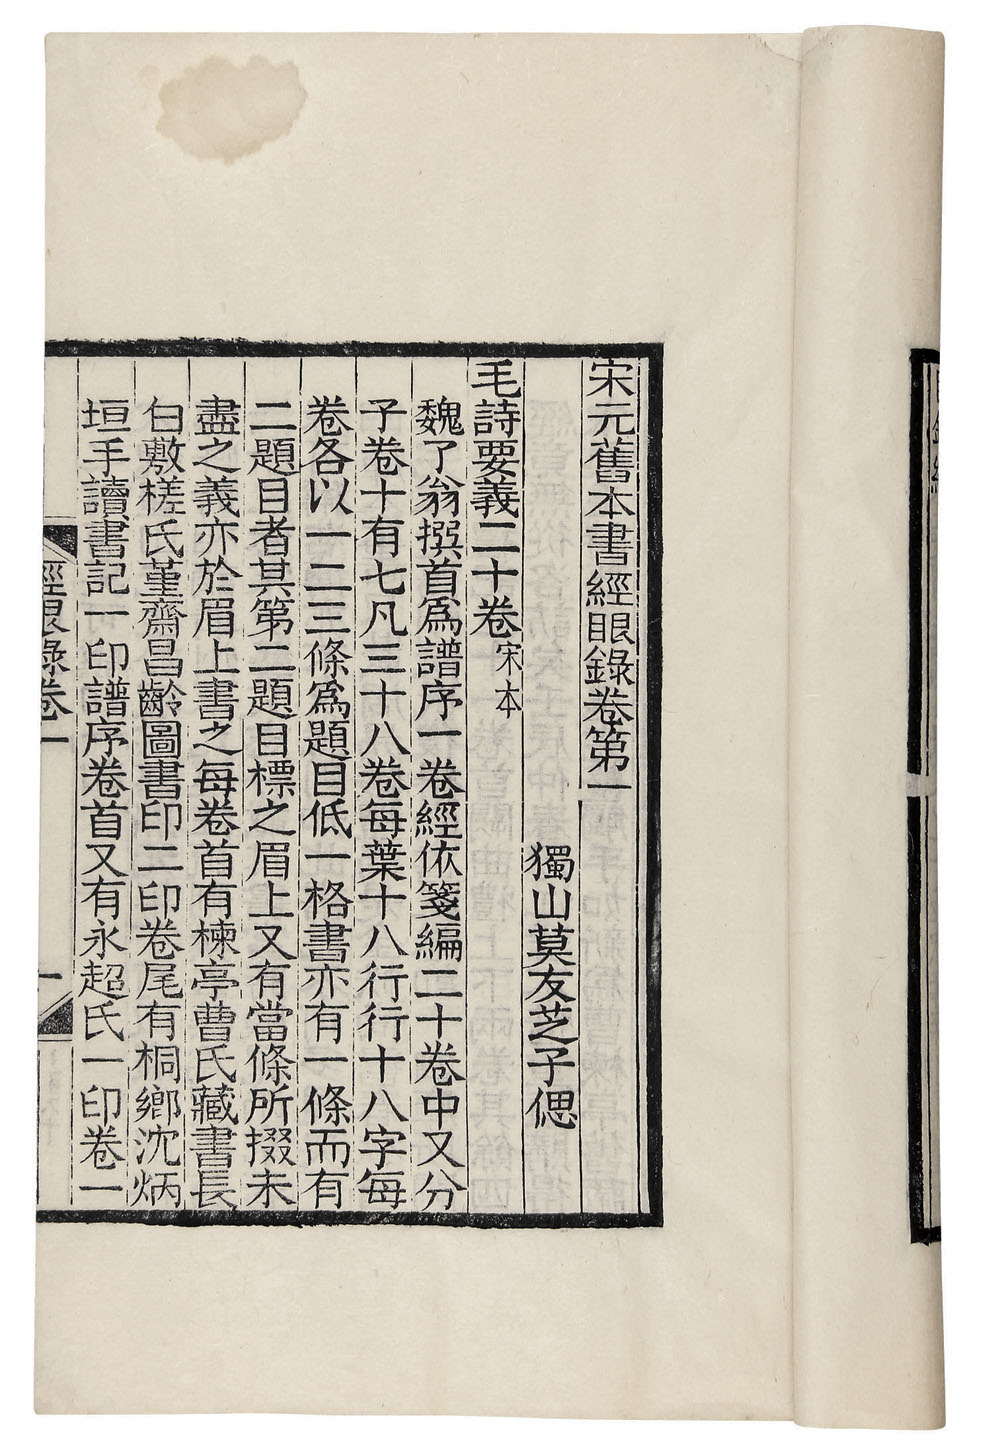 宋元舊本書經眼錄卷第一
獨山莫友芝子偲
毛詩要義二十卷宋本
魏了翁撰首爲譜序一卷經依箋編二十卷中又分
子卷十有七凡三十八卷每葉十八行行十八字每
卷各以一二三條爲題目低一格書亦有一條而有
二題目者其第二題目標之眉上又有當條所掇未
盡之義亦於眉上書之每卷首有楝亭曹氏藏書長
白敷槎氏堇齋昌齡圖書印二印卷尾有桐鄉沈炳
垣手讀書記一印譜序卷首又有永超氏一印卷一
經眼錄卷一
一